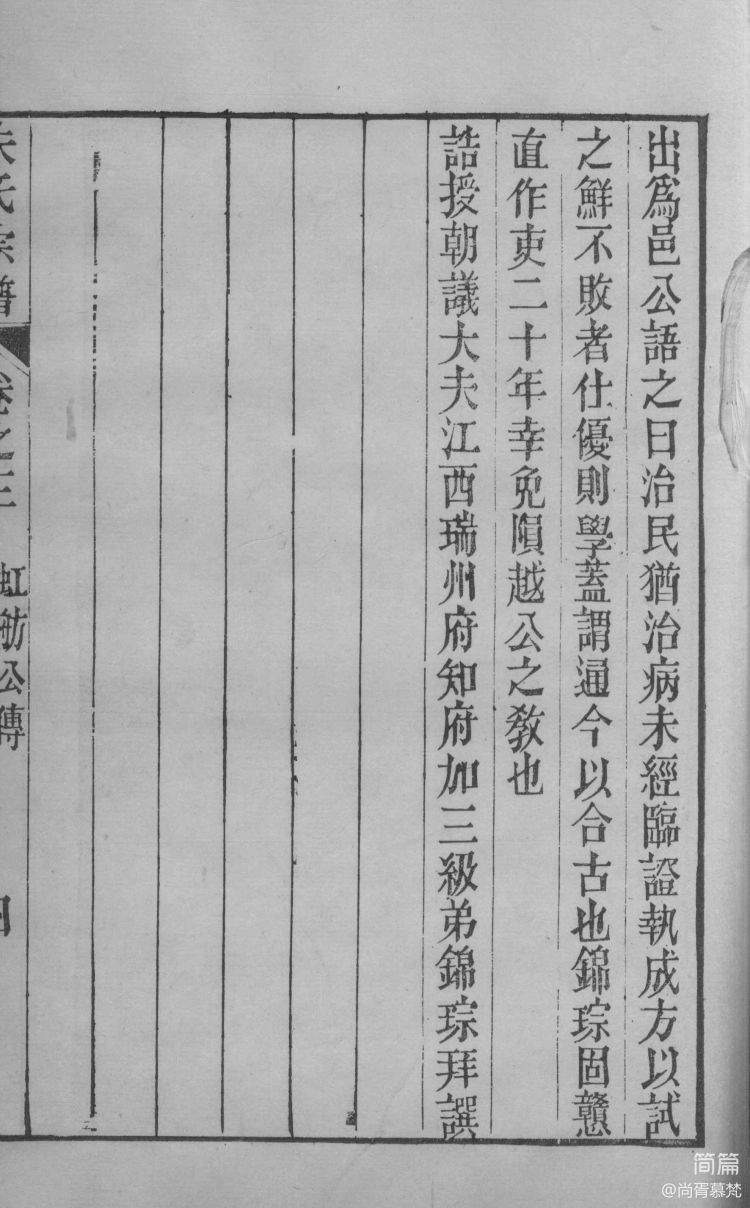 出爲邑公語之曰治民猶治病未經臨證執成方以試
之鮮不敗者仕優則學蓋謂通今以合古也錦琮固戇
直作吏二十年幸免隕越公之敎也
誥授朝議大夫江西瑞州府知府加三級弟錦琮拜譔
氏宗譜
卷之三
虹舫公傳
简篇
@尚胥慕梵